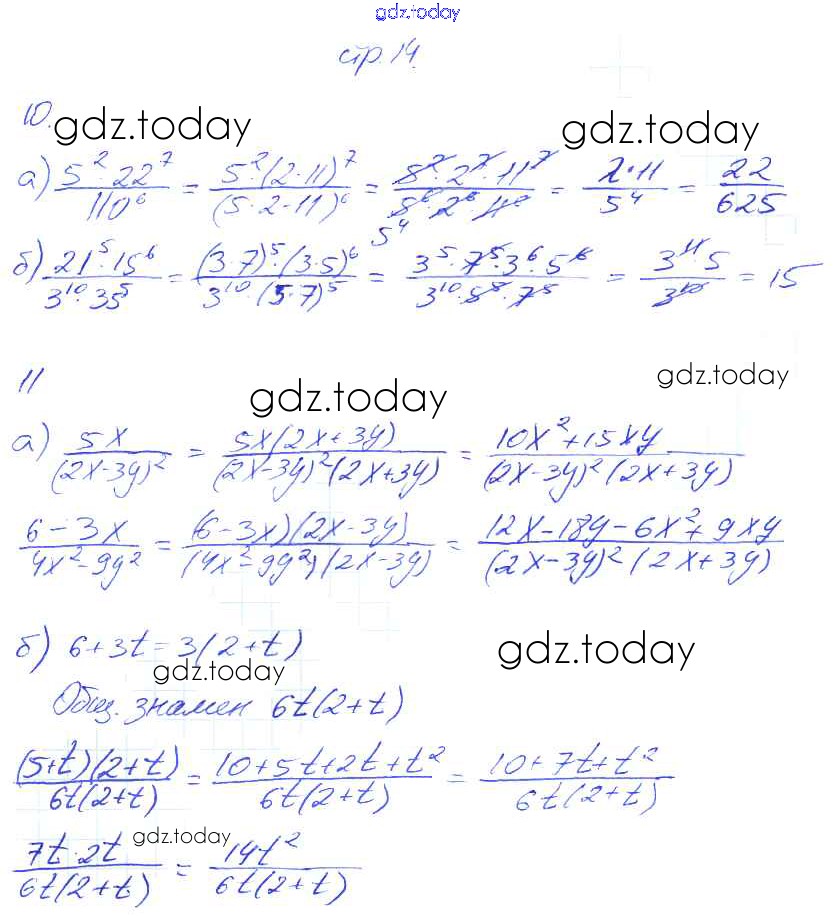 gdz.today
стр. 14.
10.
gdz.today gdz.today
а) 5²·22⁷/110⁶ = 5²·(2·11)⁷/(5·2·11)⁶ = 5²·2⁷·11⁷/5⁶·2⁶·11⁶ = 2·11/5⁴ = 22/625
5⁴
б) 21⁵·15⁶/3¹⁰·35⁵ = (3·7)⁵·(3·5)⁶/3¹⁰·(5·7)⁵ = 3⁵·7⁵·3⁶·5⁶/3¹⁰·5⁵·7⁵ = 3¹¹·5/3¹⁰ = 15
11
gdz.today gdz.today
а) 5x/(2x-3y)² = 5x(2x+3y)/(2x-3y)²(2x+3y) = 10x²+15xy/(2x-3y)²(2x+3y)
6-3x/4x²-9y² = (6-3x)(2x-3y)/(4x²-9y²)(2x-3y) = 12x-18y-6x²+9xy/(2x-3y)²(2x+3y)
б) 6+3t=3(2+t) gdz.today
gdz.today
Общ. знамен 6t(2+t)
(5+t)(2+t)/6t(2+t) = 10+5t+2t+t²/6t(2+t) = 10+7t+t²/6t(2+t)
gdz.today
7t·2t/6t(2+t) = 14t²/6t(2+t)